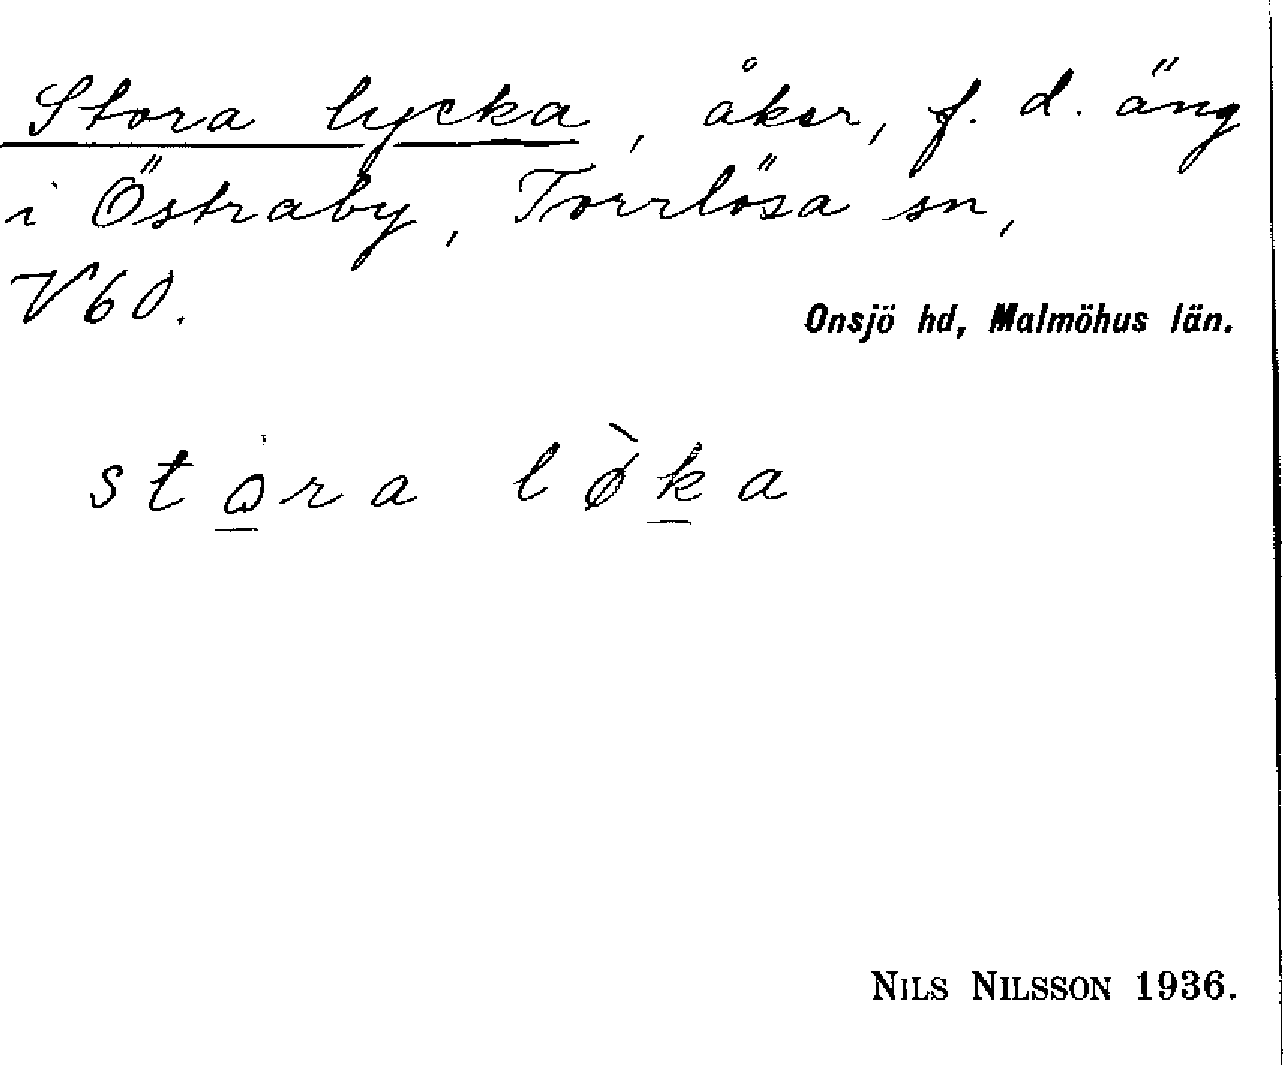 Stora lycka, åker, f. d. äng
i Östraby, Torrlösa sn,
V60.
Onsjö hd, Malmöhus län.
sto̲ra lø̀k̲a
NILS NILSSON 1936.